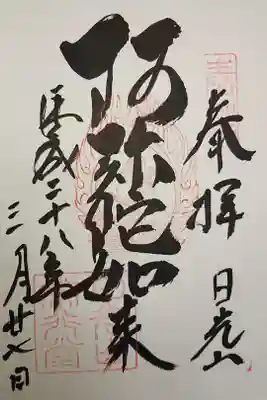 奉拝
日光山
阿弥陀如来
平成二十八年
三月廿七日